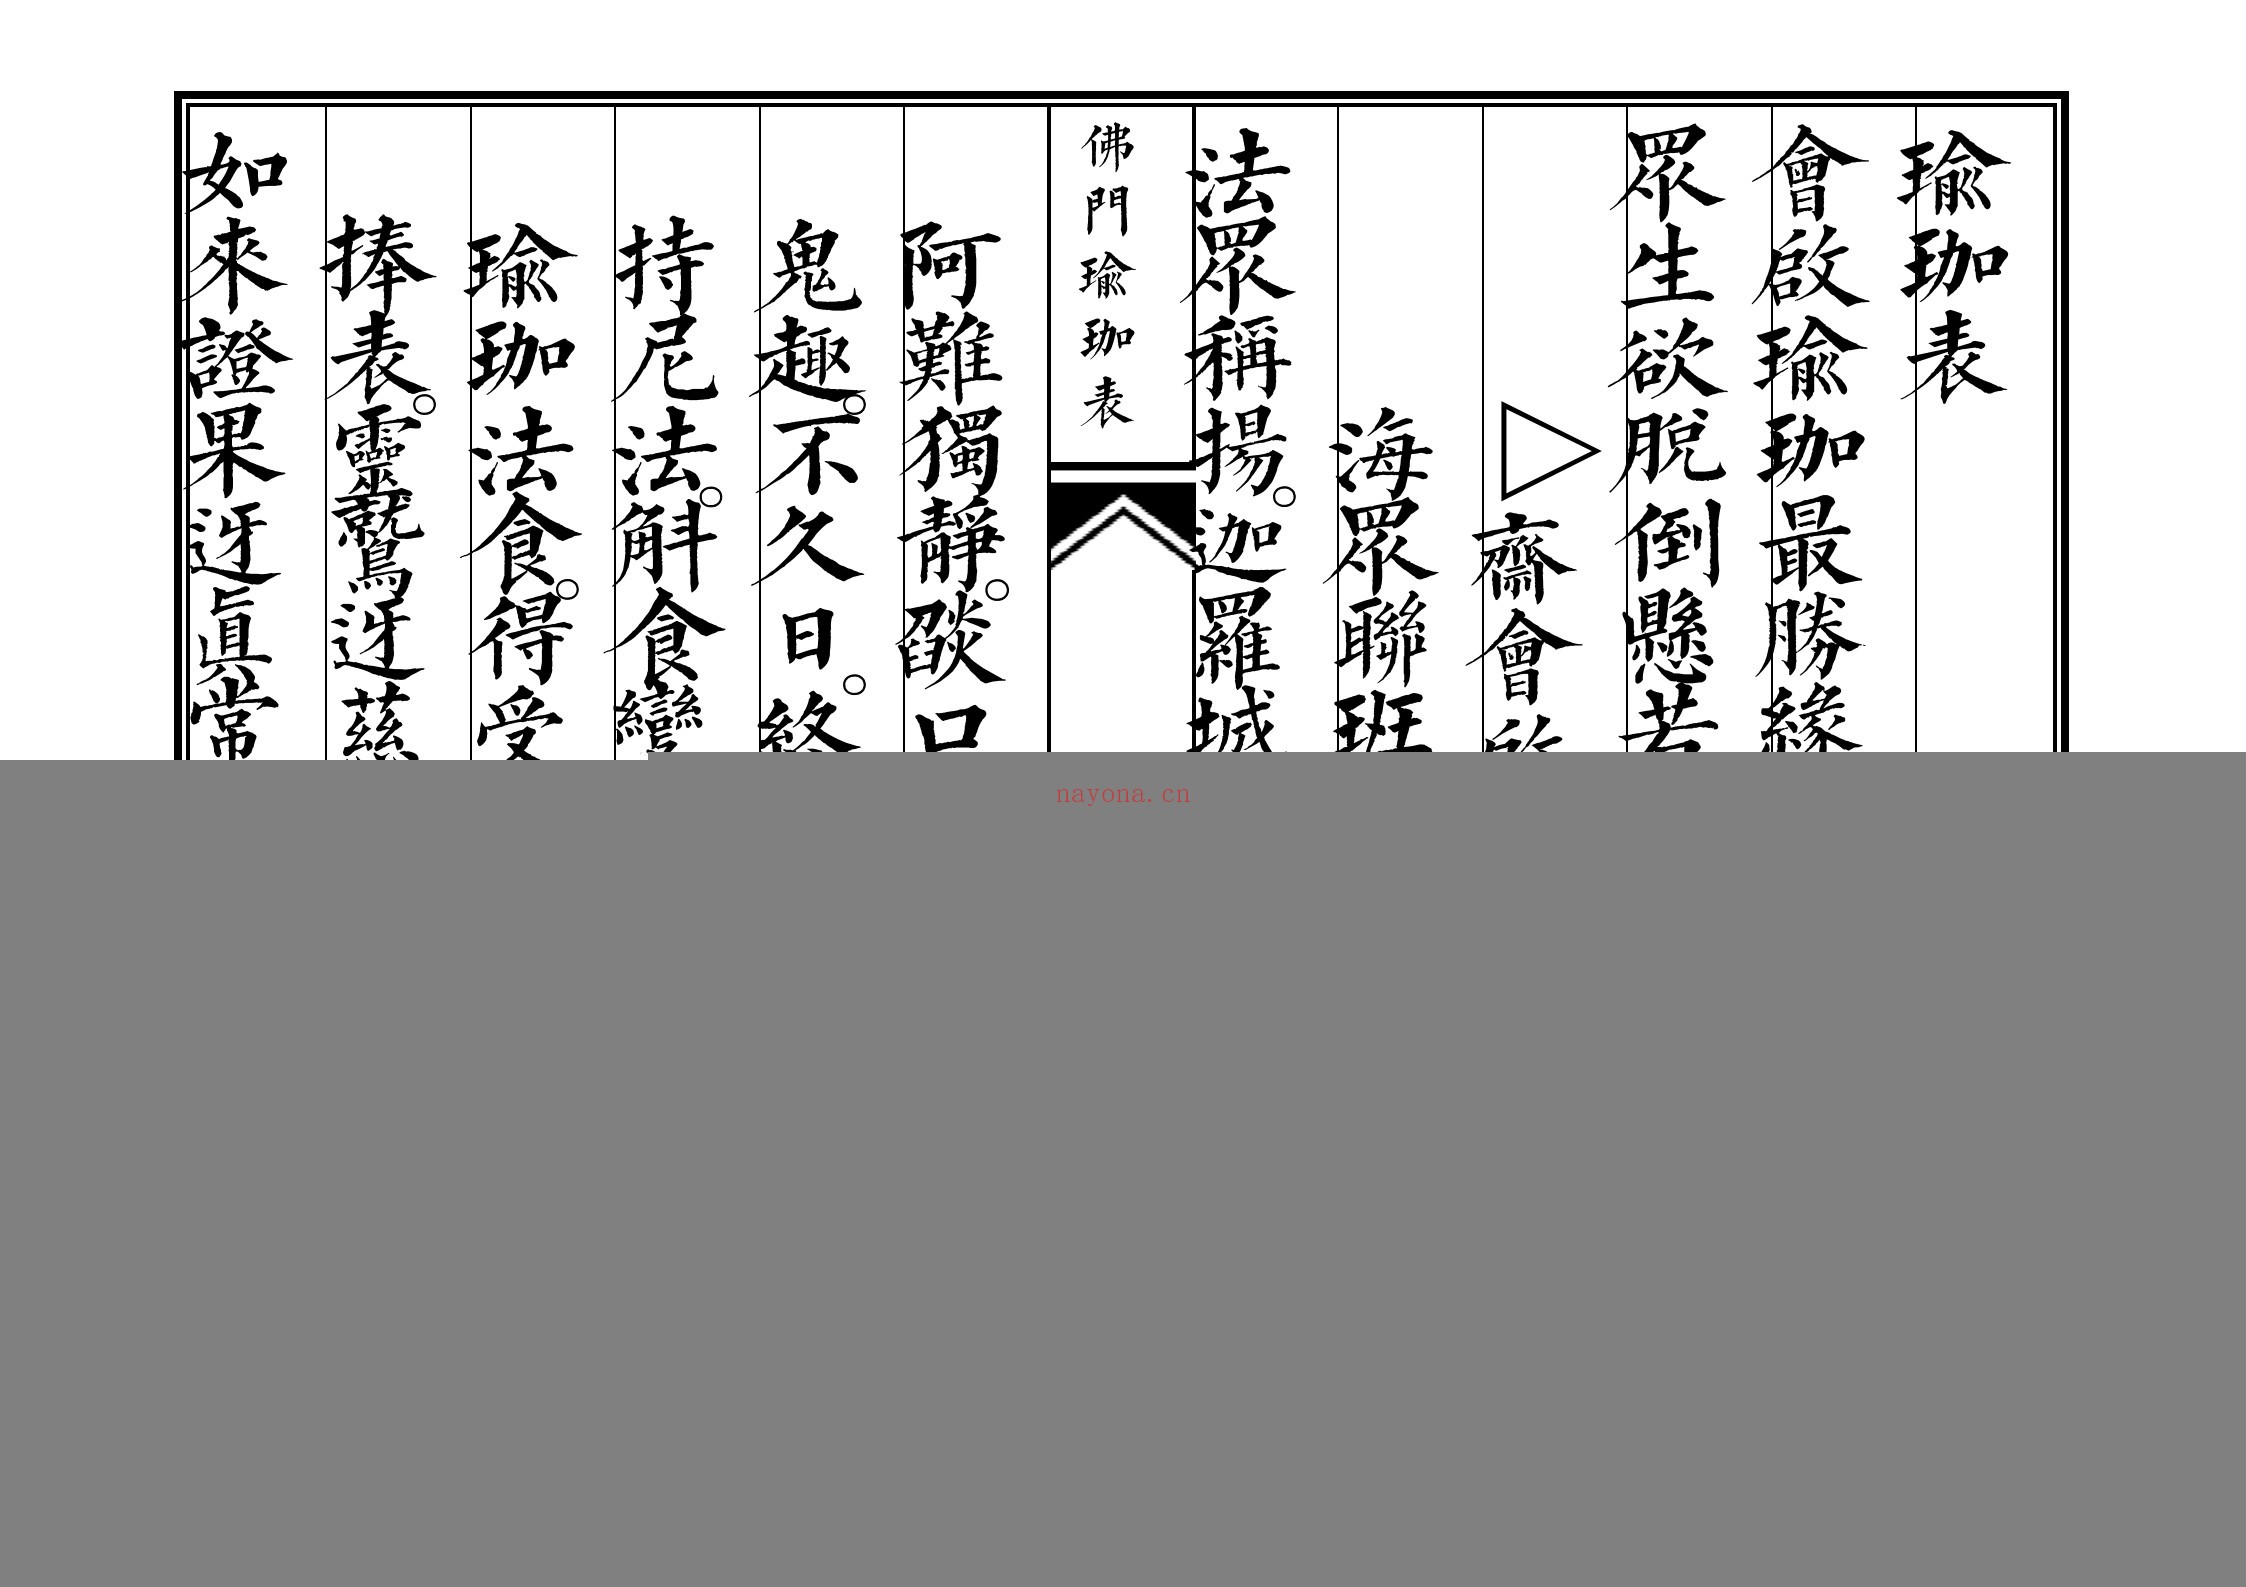 瑜珈表
會啟瑜珈最勝緣
眾生欲脫倒懸苦
齋會
海眾聯班
法眾稱揚。迦羅城
佛門瑜珈表
阿難獨靜。燄口
鬼趣。不久日。終
持尼法。斛食
瑜珈法食。得受
捧表。靈鷲迓慈
如來證果迓眞常
nayona.cn